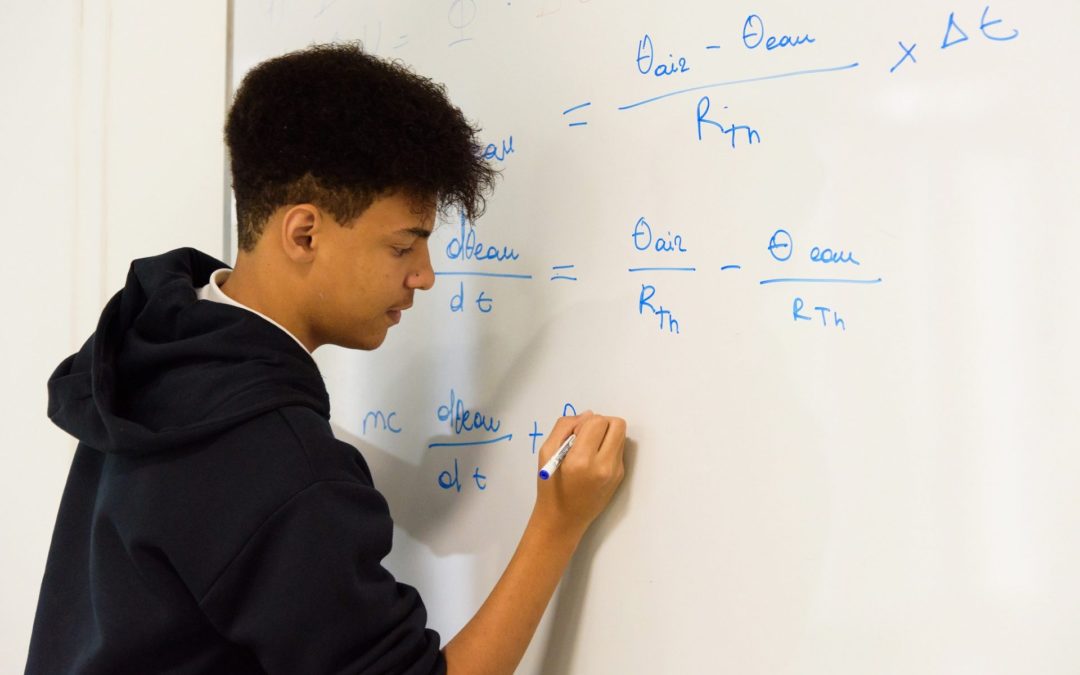 = θair - θeau / RTh × Δt
dθeau / dt = θair / RTh - θ eau / RTh
mc dθeau / dt +